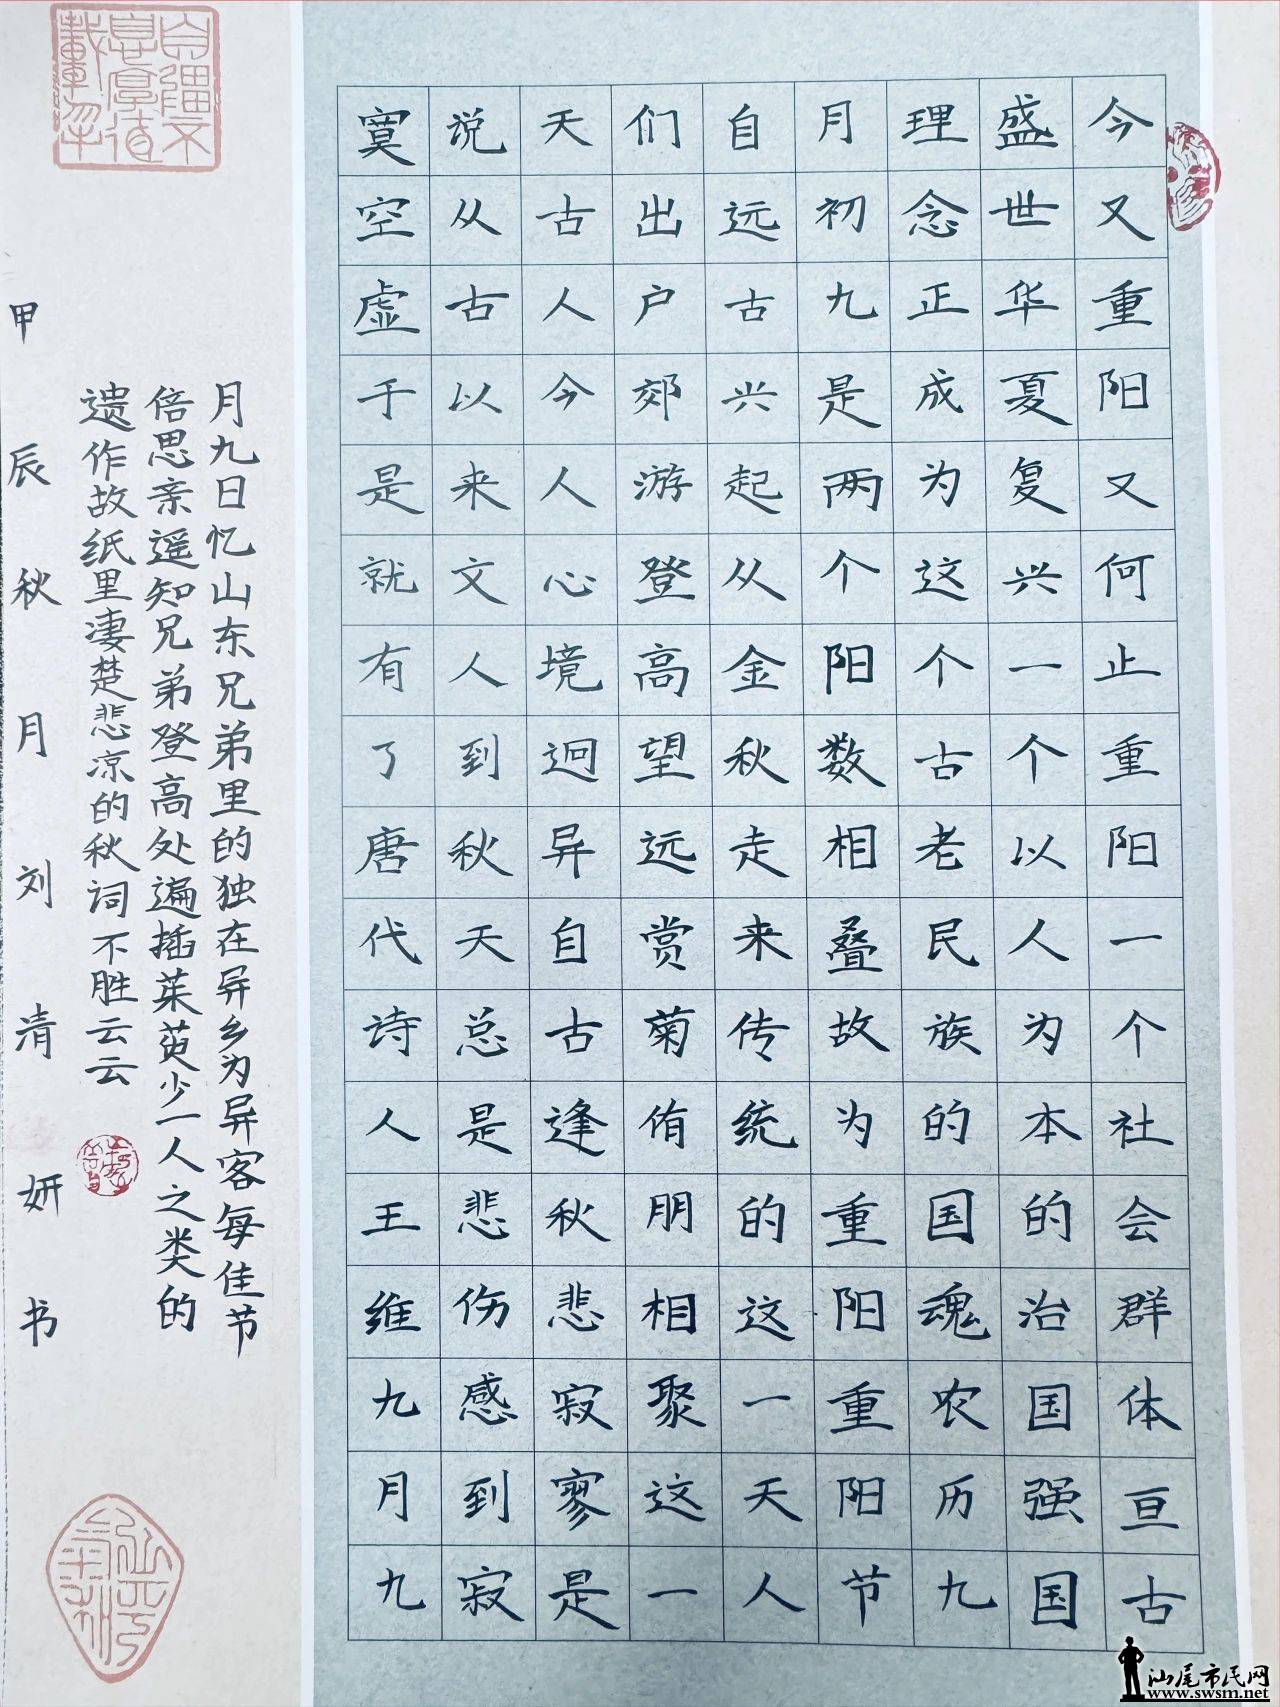 今又重阳又何止重阳一个社会群体亘古
盛世华夏复兴一个以人为本的治国强国
理念正成为这个古老民族的国魂农历九
月初九是两个阳数相叠故为重阳重阳节
自远古兴起从金秋走来传统的这一天人
们出户郊游登高望远赏菊侑朋相聚这一
天古人今人心境迥异自古逢秋悲寂寥是
说从古以来文人到秋天总是悲伤感到寂
寞空虚于是就有了唐代诗人王维九月九
月九日忆山东兄弟里的独在异乡为异客每佳节
倍思亲遥知兄弟登高处遍插茱萸少一人之类的
遗作故纸里凄楚悲凉的秋词不胜云云
甲辰秋月刘清妍书
自强不息厚德载物
汕尾市民网
www.swsm.net